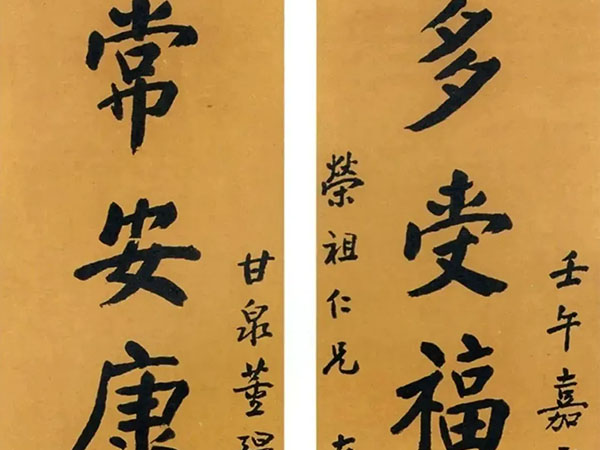 壬午嘉
多受福
榮祖仁兄
甘泉董
常安康